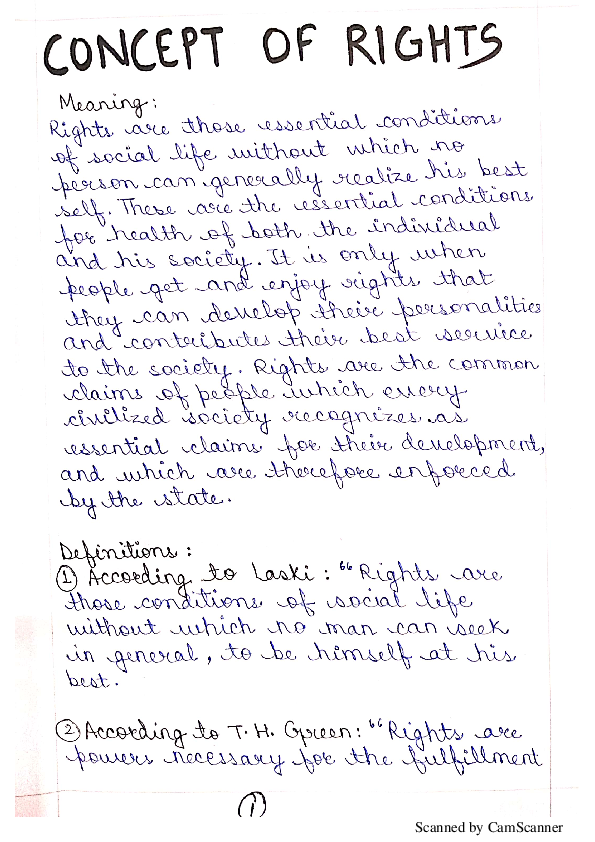 CONCEPT OF RIGHTS
Meaning:
Rights are those essential conditions
of social life without which no
person can generally realize his best
self. These are the essential conditions
for health of both the individual
and his society. It is only when
people get and enjoy rights that
they can develop their personalities
and contributes their best service
to the society. Rights are the common
claims of people which every
civilized society recognizes as
essential claims for their development,
and which are therefore enforced
by the state.
Definitions:
① According to Laski: “Rights are
those conditions of social life
without which no man can seek
in general, to be himself at his
best.
② According to T. H. Green: “Rights are
powers necessary for the fulfillment
①
Scanned by CamScanner